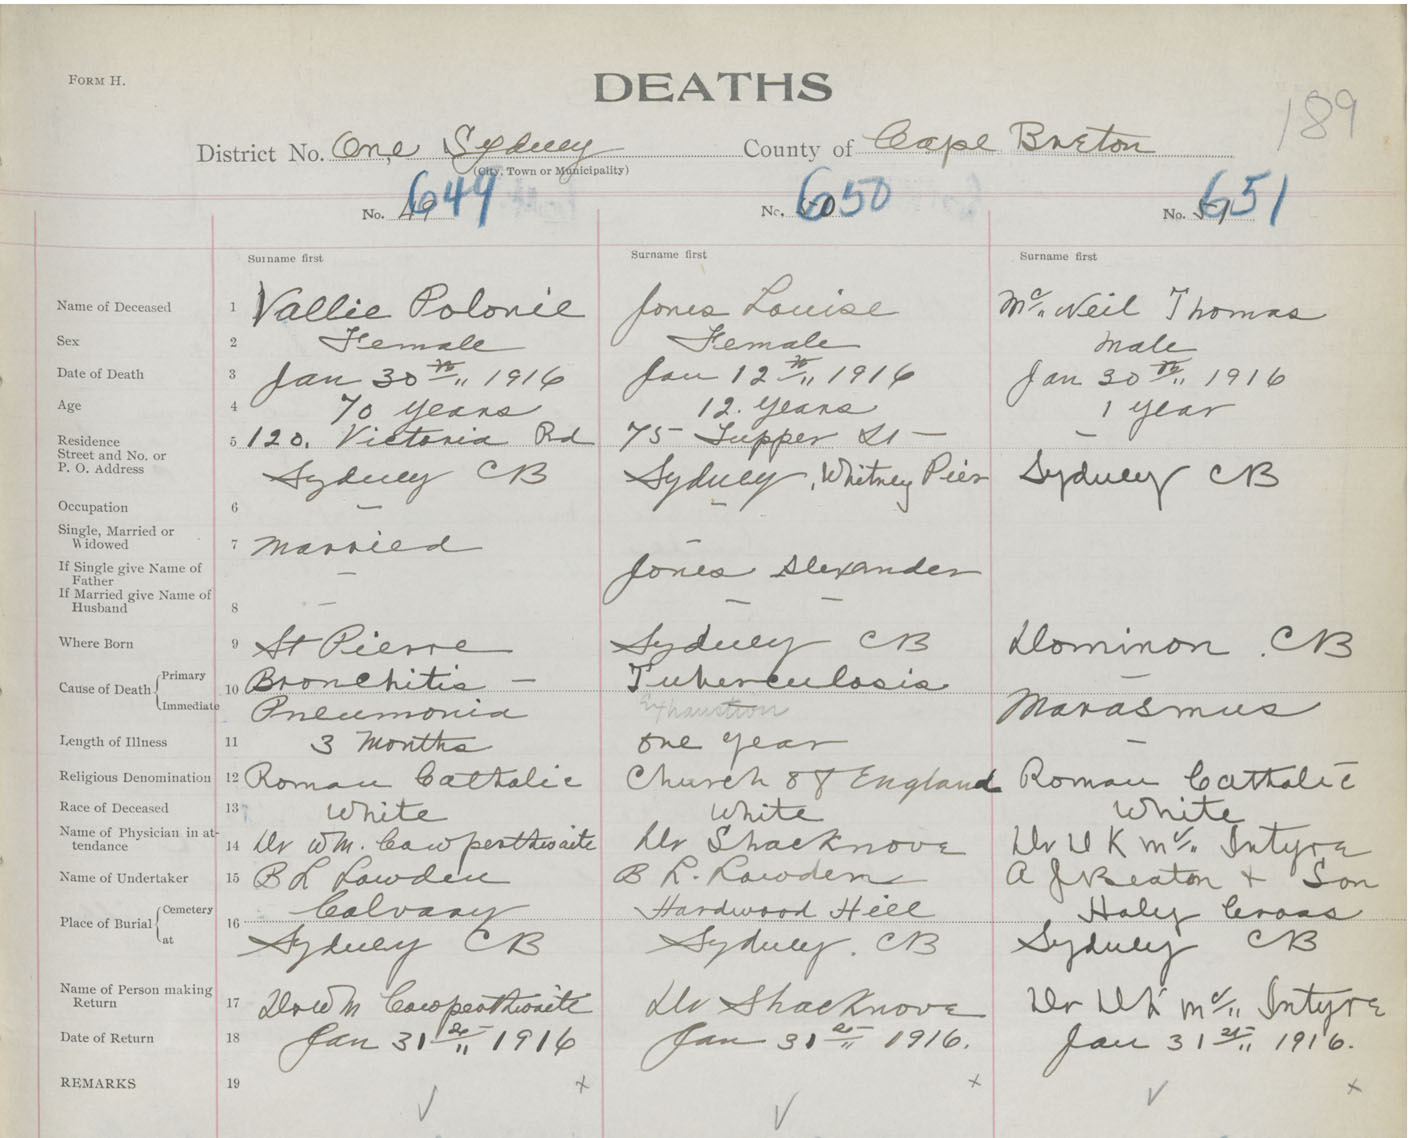 FORM H.
DEATHS
189
District No. One, Sydney County of Cape Breton
(City, Town or Municipality)
No. 49 649 No. 50 650 No. 51 651
Surname first Surname first Surname first
Name of Deceased 1 Vallie Polonie Jones Louise Mc Neil Thomas
Sex 2 Female Female Male
Date of Death 3 Jan 30th 1916 Jan 12th 1916 Jan 30th 1916
Age 4 70 years 12. years 1 year
Residence 5 120. Victoria Rd 75 Tupper St — —
Street and No. or
P. O. Address Sydney CB Sydney, Whitney Pier Sydney CB
Occupation 6 — —
Single, Married or
Widowed 7 Married —
If Single give Name of
Father — Jones Alexander
If Married give Name of
Husband 8 — — —
Where Born 9 St Pierre Sydney CB Dominon. CB
Cause of Death Primary 10 Bronchitis — Tuberculosis —
Immediate Pneumonia Exhaustion Marasmus
Length of Illness 11 3 Months one year —
Religious Denomination 12 Roman Catholic Church of England Roman Catholic
Race of Deceased 13 White White White
Name of Physician in at-
tendance 14 Dr Wm. Cowperthwaite Dr Shacknove Dr D K Mc Intyre
Name of Undertaker 15 B L Lowden B L. Lowden A J Beaton + Son
Place of Burial Cemetery 16 Calvary Hardwood Hill Holy Cross
at Sydney CB Sydney. CB Sydney CB
Name of Person making
Return 17 Dr Wm Cowperthwaite Dr Shacknove Dr D K Mc Intyre
Date of Return 18 Jan 31st 1916 Jan 31st 1916. Jan 31st 1916.
REMARKS 19 x x x